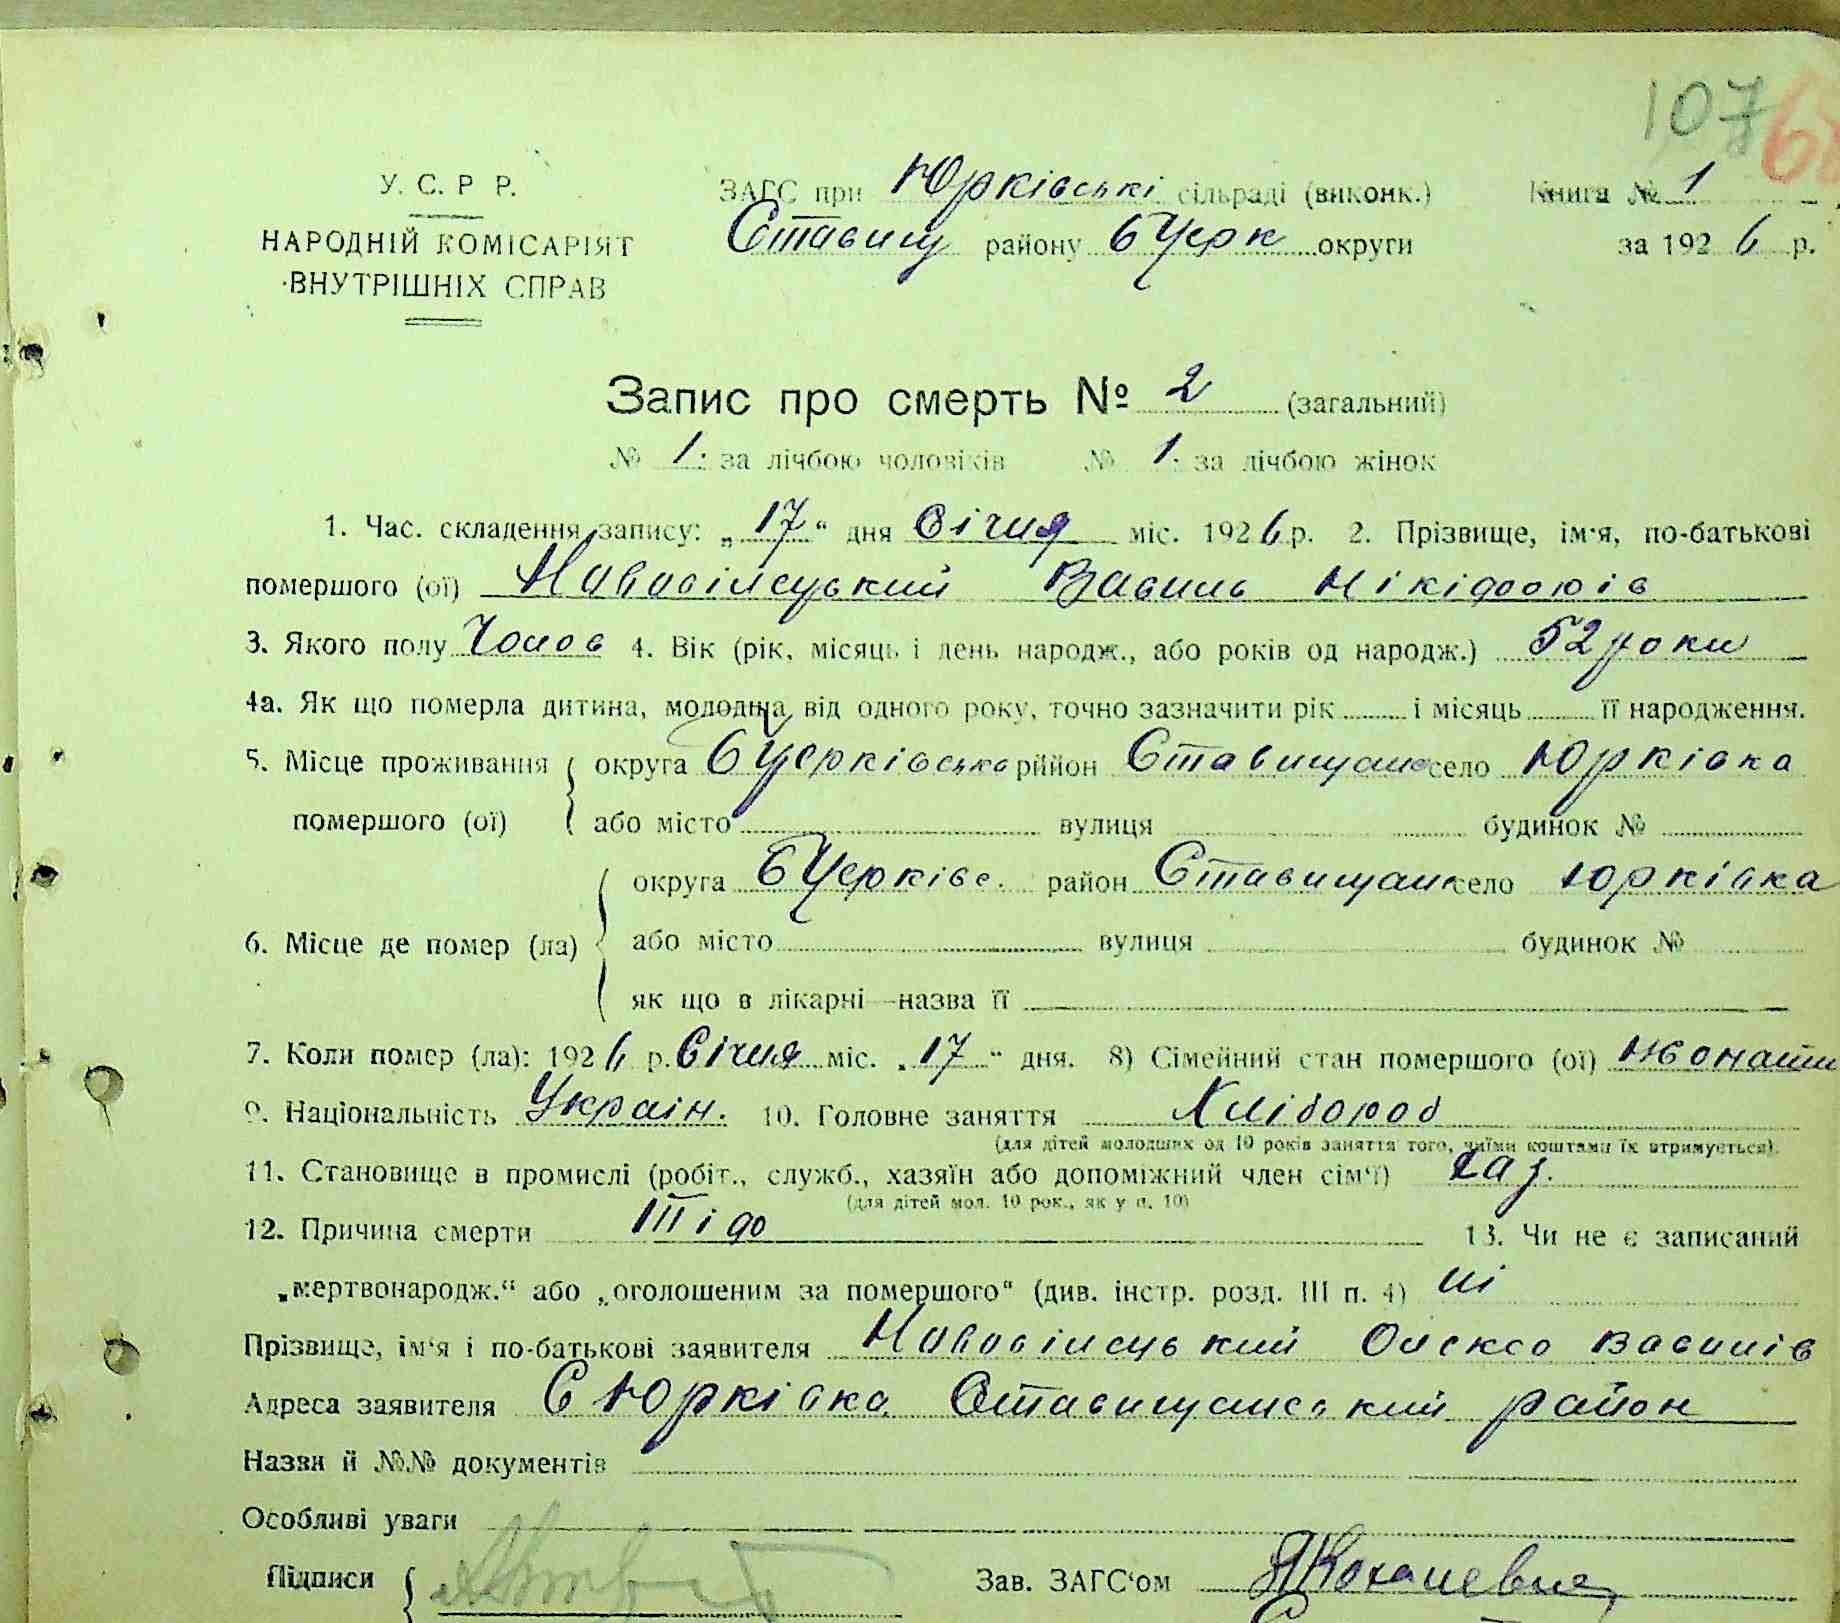 107 68
У. С. Р Р.
ЗАГС при Юрківські сільраді (виконк.) Книга № 1
НАРОДНІЙ КОМІСАРІЯТ Ставищ району БЦерк округи за 1926 р.
ВНУТРІШНІХ СПРАВ
Запис про смерть № 2 (загальний)
№ 1. за лічбою чоловіків № 1. за лічбою жінок
1. Час. складення запису: „17“ дня Січня міс. 1926 р. 2. Прізвище, ім'я, по-батькові
помершого (ої) Новосілецький Василь Нікіфорів
3. Якого полу Чолов 4. Вік (рік, місяць і день народж., або років од народж.) 52 роки
4а. Як що померла дитина, молодша від одного року, точно зазначити рік і місяць її народження.
5. Місце проживання округа БЦерківська район Ставищанс село Юрківка
помершого (ої) або місто вулиця будинок №
округа БЦерківс. район Ставищанс село Юрківка
6. Місце де помер (ла) або місто вулиця будинок №
як що в лікарні—назва її
7. Коли помер (ла): 1926 р. Січня міс. „17“ дня. 8) Сімейний стан помершого (ої) жонати
9. Національність Украін. 10. Головне заняття Хлібороб
(для дітей молодших од 10 років заняття того, чиїми коштами їх втримується).
11. Становище в промислі (робіт., служб., хазяїн або допоміжний член сім'ї) хаз.
(для дітей мол. 10 рок., як у п. 10)
12. Причина смерти Тіфо 13. Чи не є записаний
„мертвонародж.“ або „оголошеним за помершого“ (див. інстр. розд. III п. 4) ні
Прізвище, ім'я і по-батькові заявителя Новосілецький Олексо Василів
Адреса заявителя С Юрківка Ставищанський район
Назви й №№ документів
Особливі уваги
Підписи Зав. ЗАГС'ом